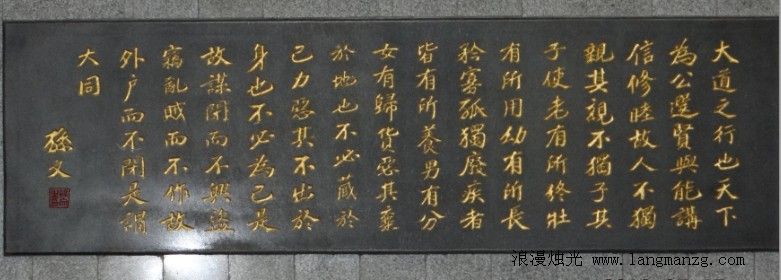 大道之行也天下
為公選賢與能講
信修睦故人不獨
親其親不獨子其
子使老有所終壯
有所用幼有所長
矜寡孤獨廢疾者
皆有所養男有分
女有歸貨惡其棄
於地也不必藏於
己力惡其不出於
身也不必為己是
故謀閉而不興盜
竊亂賊而不作故
外户而不閉是謂
大同
孫文
浪漫烛光 www.langmanzg.com